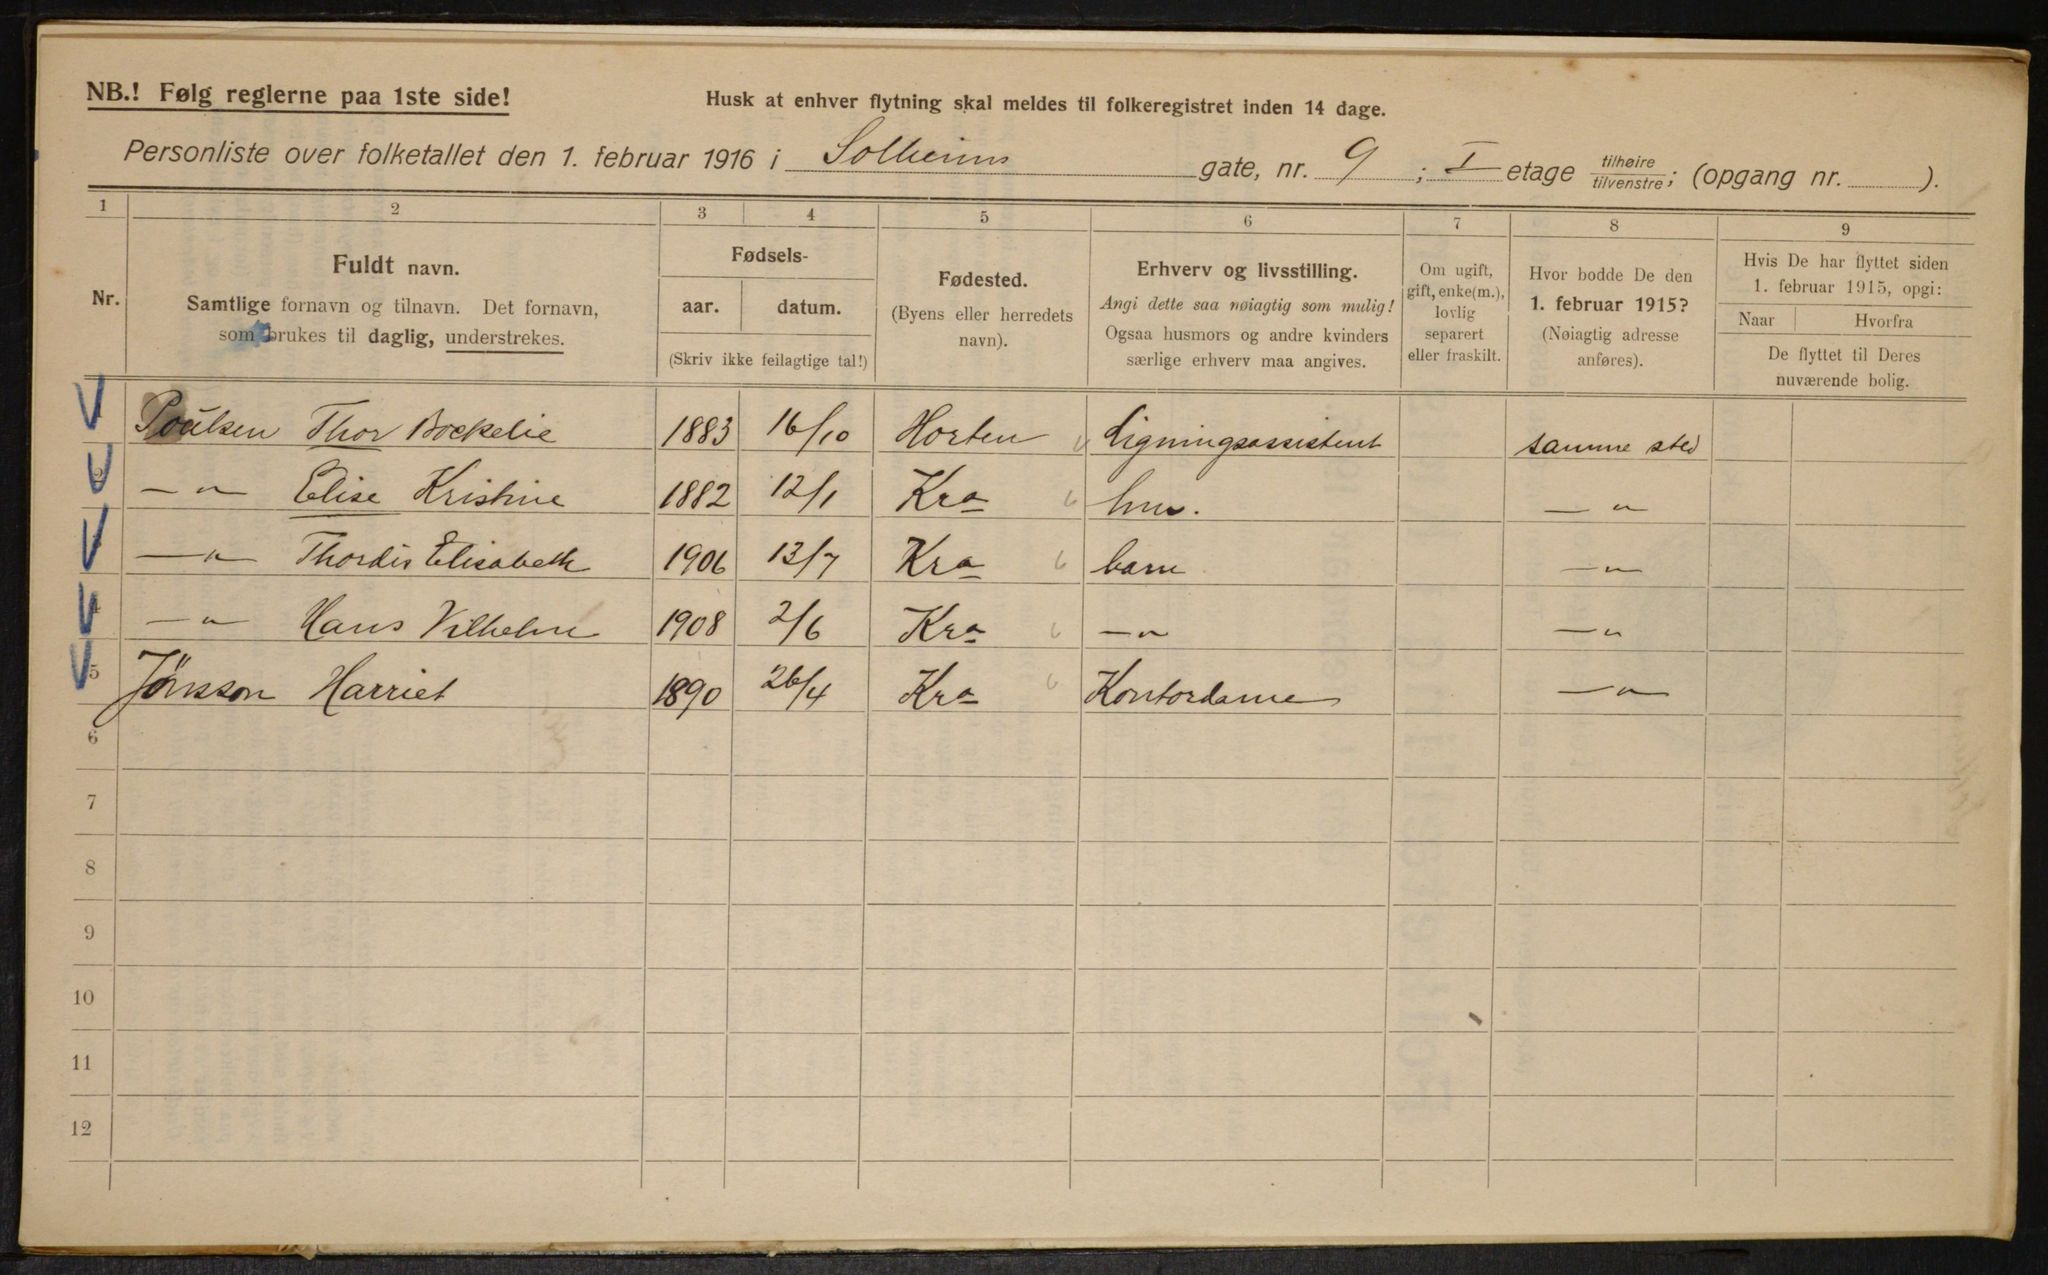 NB.! Følg reglerne paa 1ste side!
Husk at enhver flytning skal meldes til folkeregistret inden 14 dage.
Personliste over folketallet den 1. februar 1916 i Solheims gate, nr. 9 ; I etage tilhøire/tilvenstre; (opgang nr. ).
1 2 3 4 5 6 7 8 9
Nr.
Fuldt navn.
Samtlige fornavn og tilnavn. Det fornavn,
som brukes til daglig, understrekes.
Fødsels-
aar. datum.
(Skriv ikke feilagtige tal!)
Fødested.
(Byens eller herredets
navn).
Erhverv og livsstilling.
Angi dette saa nøiagtig som mulig!
Ogsaa husmors og andre kvinders
særlige erhverv maa angives.
Om ugift,
gift, enke(m.),
lovlig
separert
eller fraskilt.
Hvor bodde De den
1. februar 1915?
(Nøiagtig adresse
anføres).
Hvis De har flyttet siden
1. februar 1915, opgi:
Naar Hvorfra
De flyttet til Deres
nuværende bolig.
1 Poulsen Thor Bockelie 1883 16/10 Horten Ligningsassistent samme sted
2 —"— Elise Kristine 1882 12/1 Kra hm. —"—
—"— Thordis Elisabeth 1906 13/7 Kra barn —"—
4 —"— Hans Vilhelm 1908 2/6 Kra —"— —"—
5 Jönsson Harriet 1890 26/4 Kra Kontordame —"—
6
7
8
9
10
11
12